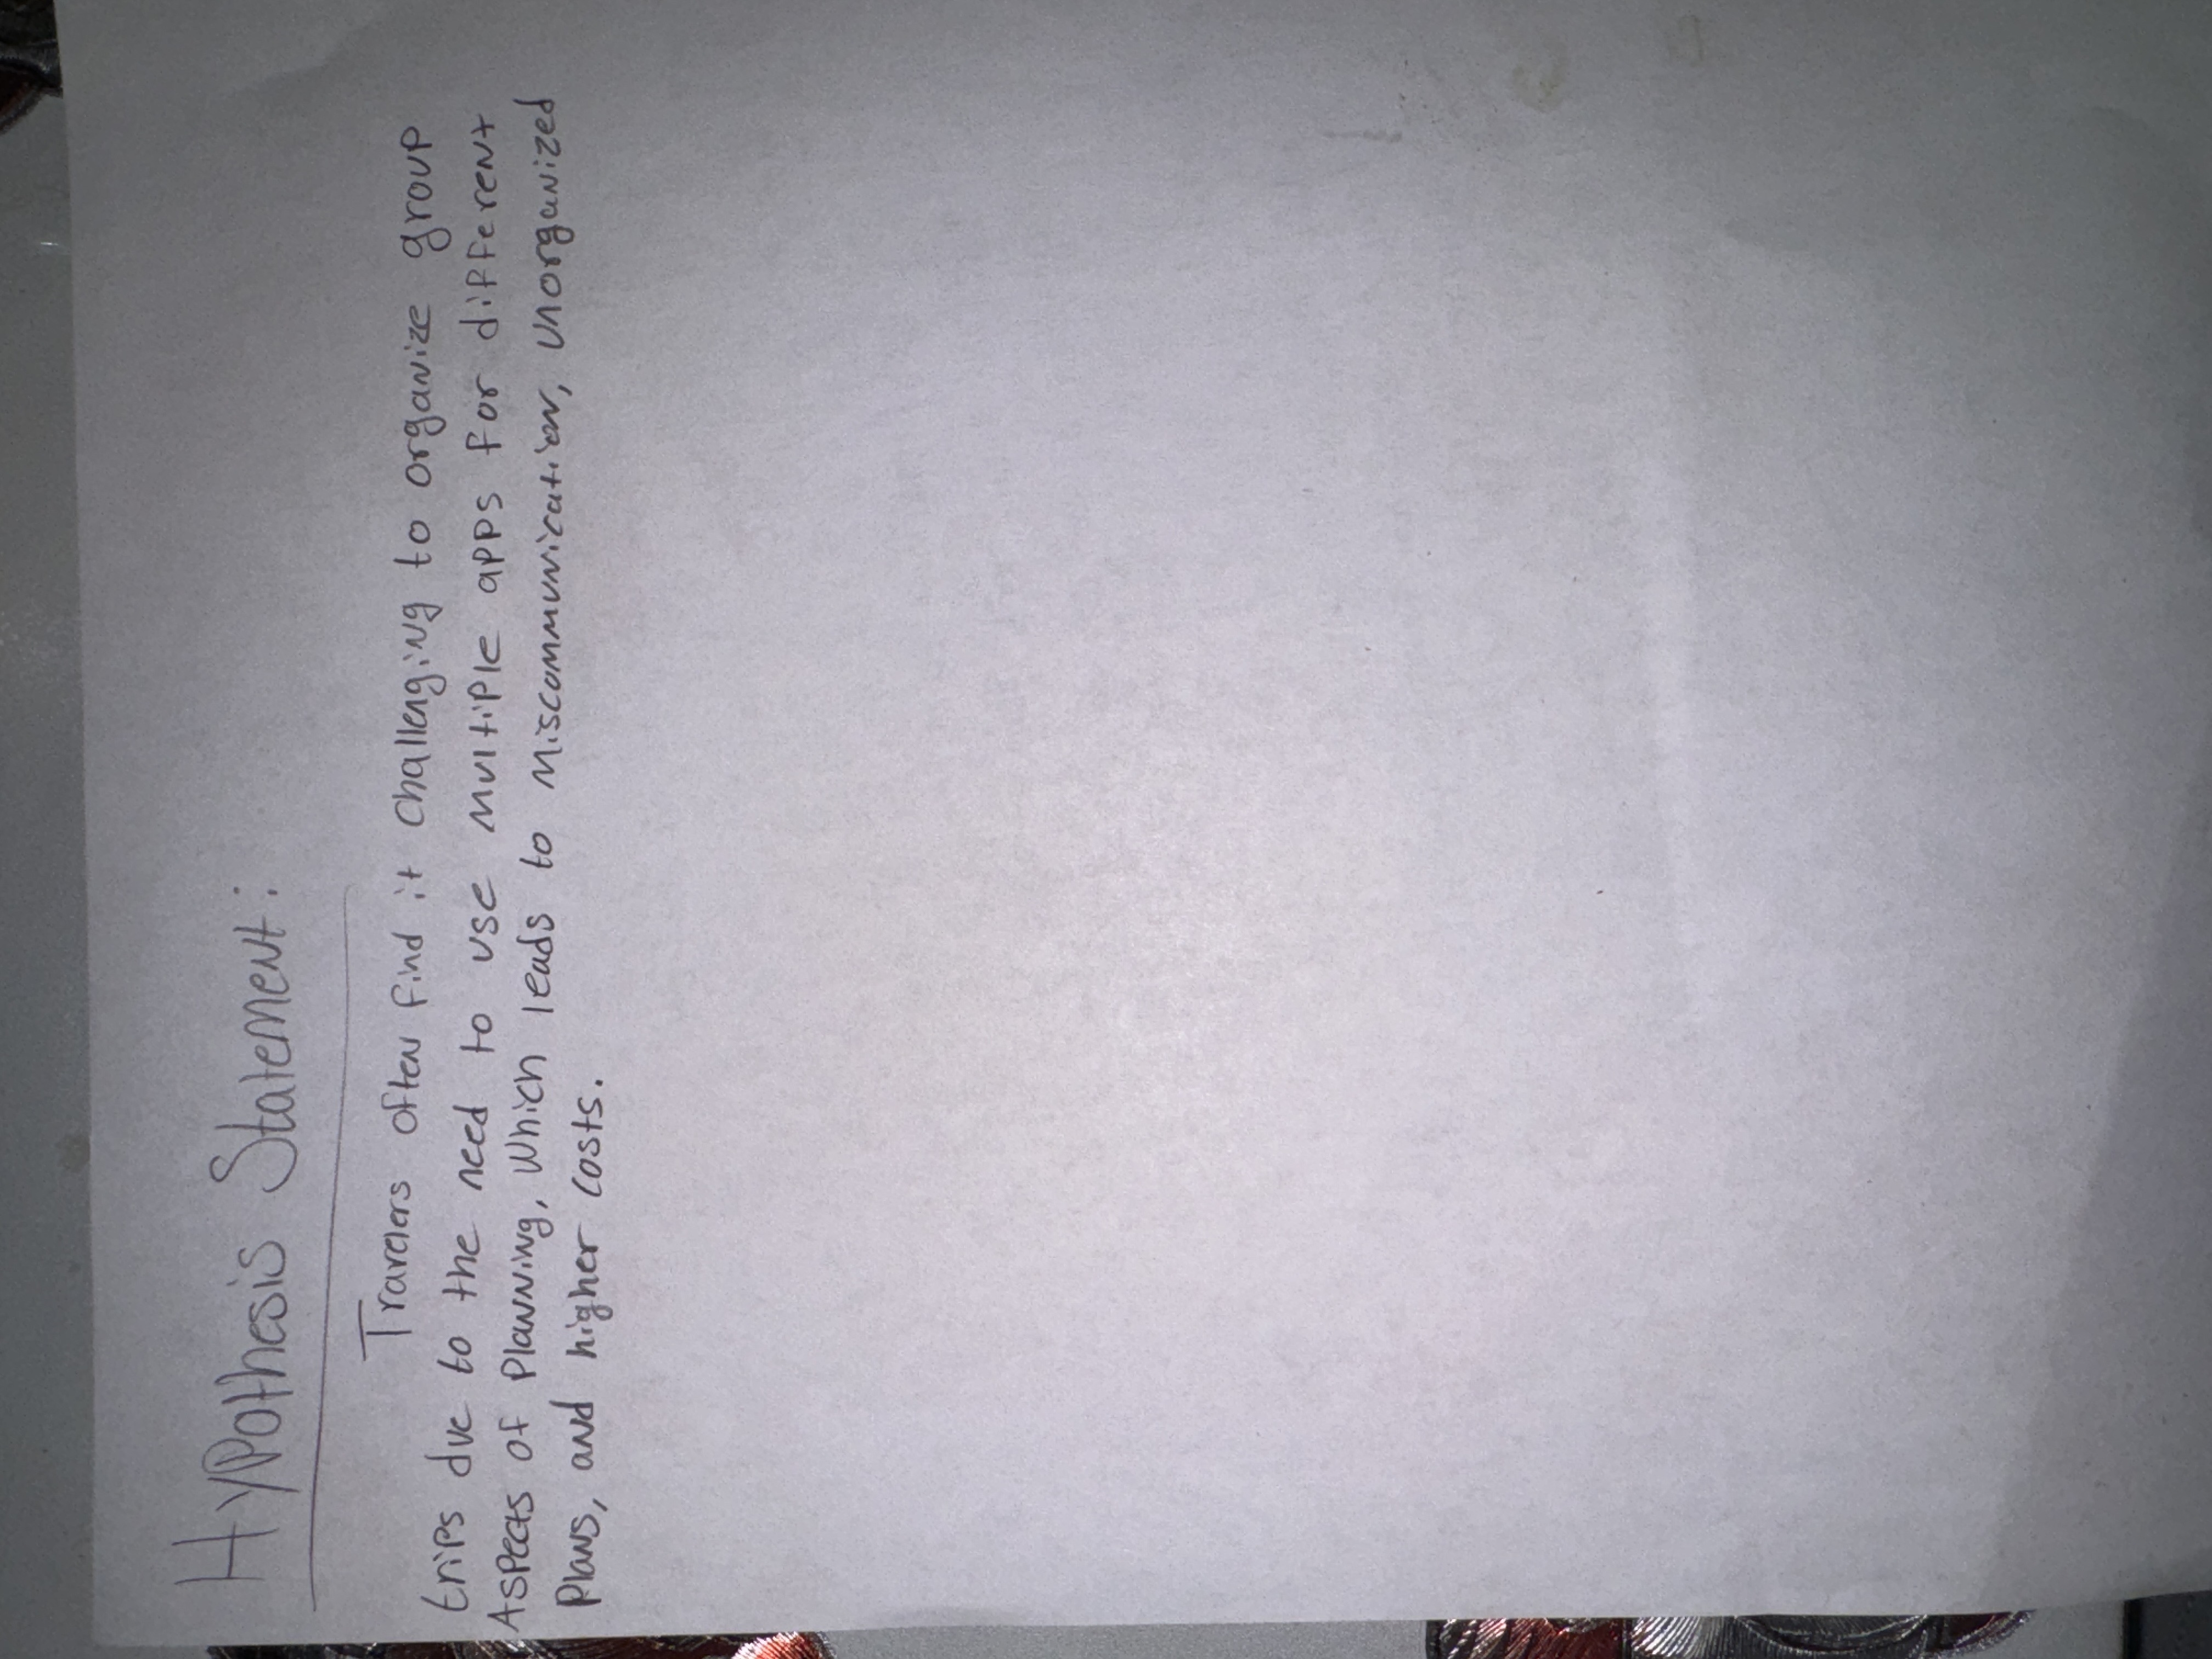 Hypothesis Statement:
Travelers often find it challenging to organize group
trips due to the need to use multiple apps for different
Aspects of Planning, Which leads to Miscommunication, Unorganized
Plans, and higher costs.